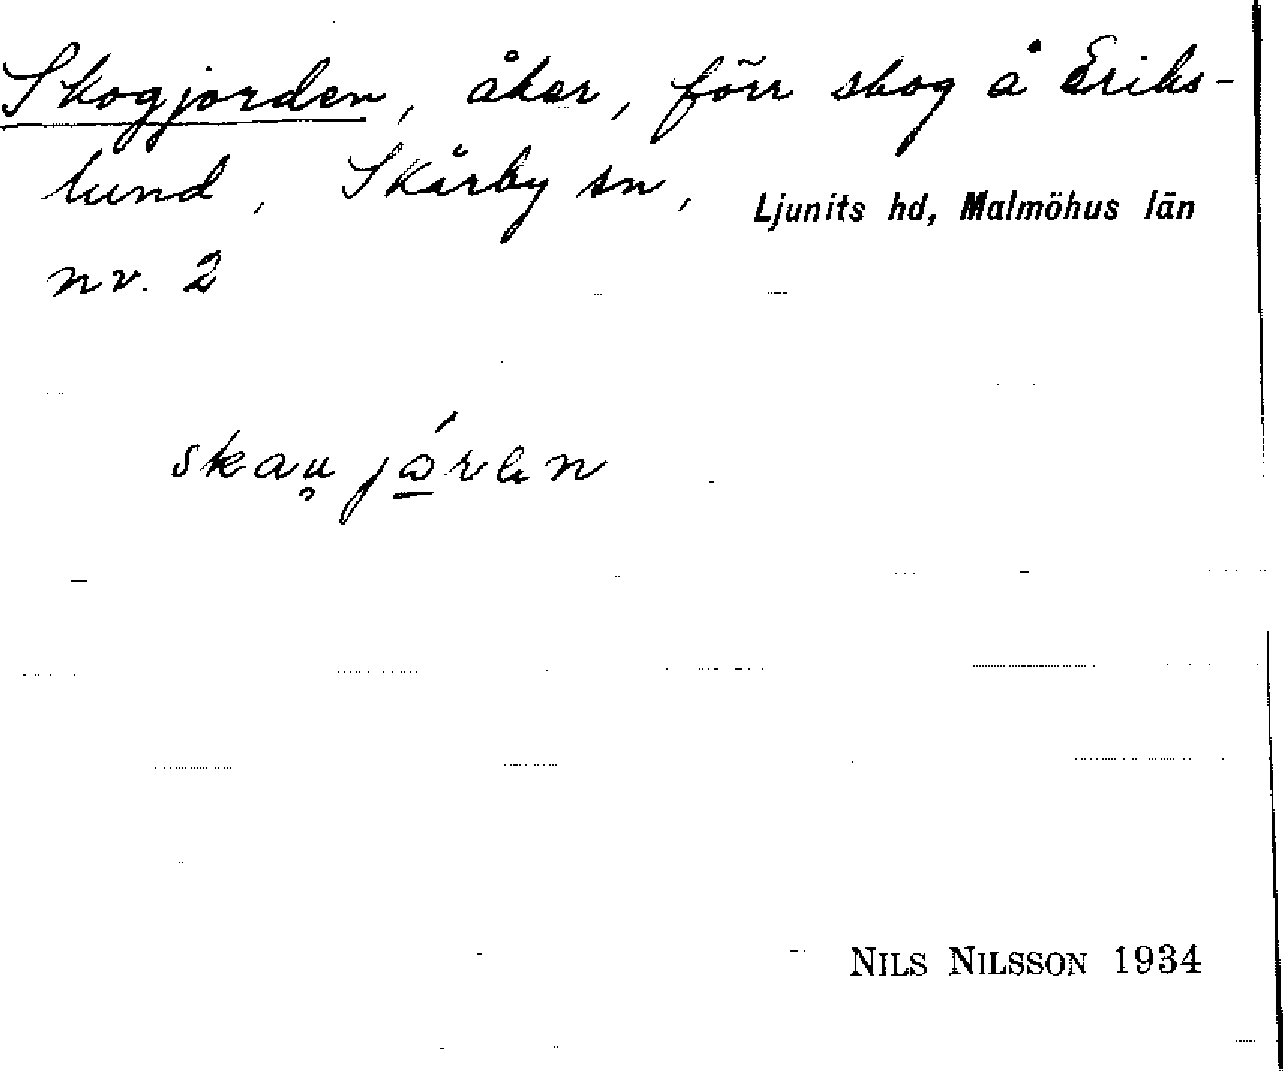 Skogjorden, åker, förr skog å Eriks-
lund, Skårby sn, Ljunits hd, Malmöhus län
nv. 2
NILS NILSSON 1934